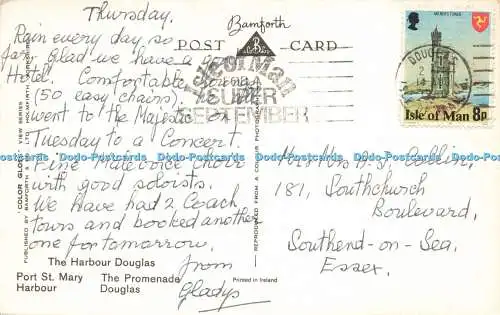 Thursday.
Rain every day so
far. Glad we have a good
Hotel. Comfortable
(50 easy chairs). We
went to the Majestic on
Tuesday to a Concert.
Fine Male Voice Choir
with good soloists.
We have had 2 Coach
tours and booked another
one for tomorrow.
from
Gladys
The Harbour Douglas
Port St. Mary The Promenade
Harbour Douglas
"COLOR GLOSS" VIEW SERIES
PUBLISHED BY BAMFORTH &
Bamforth
POST CARD
Isle of Man
FOR A
SUPER
SEPTEMBER
REPRODUCED FROM A COLOUR PHOTOGRAPH
Printed in Ireland
DOUGLAS
Isle of Man 8p
Mr & Mrs A. S.
181, Southchurch
Boulevard,
Southend-on-Sea.
Essex.
Dodo-Postcards Dodo-Postcards Dodo-Postcards Dodo-Postcards Dodo-Postcards Dodo-Postcards